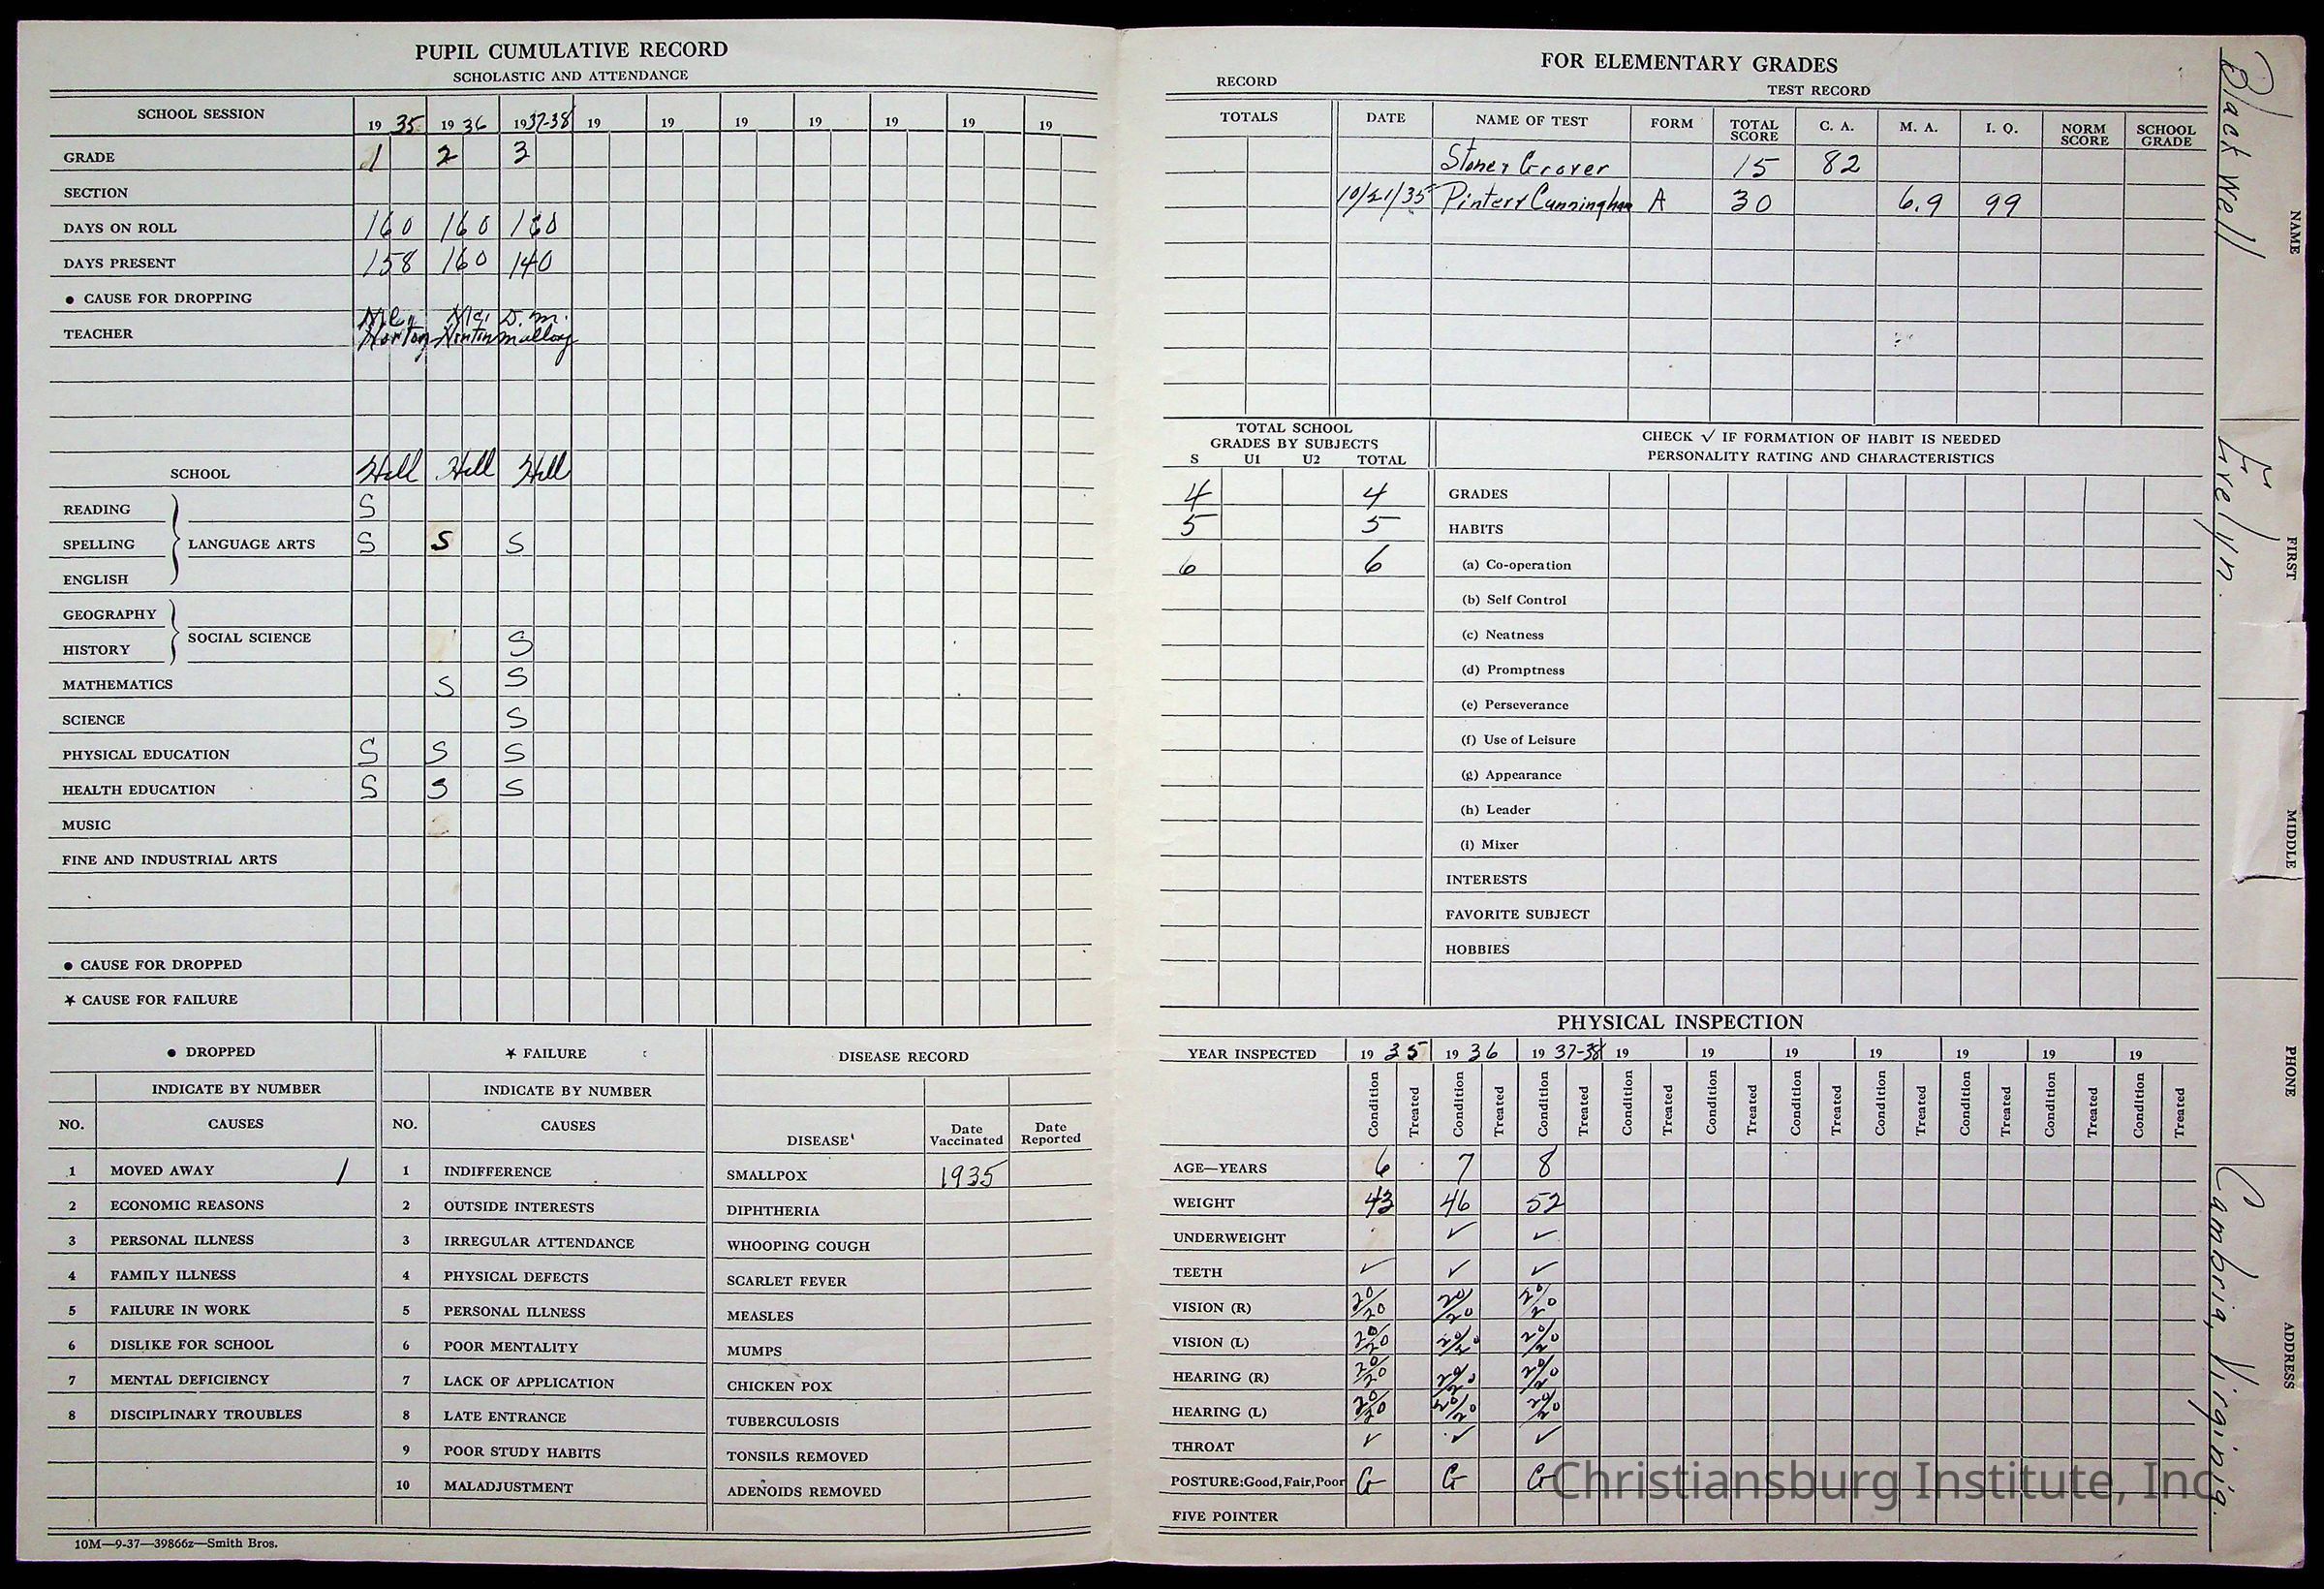 PUPIL CUMULATIVE RECORD
SCHOLASTIC AND ATTENDANCE
SCHOOL SESSION 19 35 19 36 19 37-38 19 19 19 19 19 19 19
GRADE 1 2 3
SECTION
DAYS ON ROLL 160 160 160
DAYS PRESENT 158 160 140
● CAUSE FOR DROPPING
TEACHER D. M. Mallory
SCHOOL Hill Hill Hill
READING S
SPELLING LANGUAGE ARTS S S S
ENGLISH
GEOGRAPHY
SOCIAL SCIENCE S
HISTORY
MATHEMATICS S S
SCIENCE S
PHYSICAL EDUCATION S S S
HEALTH EDUCATION S S S
MUSIC
FINE AND INDUSTRIAL ARTS
● CAUSE FOR DROPPED
★ CAUSE FOR FAILURE
● DROPPED
INDICATE BY NUMBER
NO. CAUSES
1 MOVED AWAY 1
2 ECONOMIC REASONS
3 PERSONAL ILLNESS
4 FAMILY ILLNESS
5 FAILURE IN WORK
6 DISLIKE FOR SCHOOL
7 MENTAL DEFICIENCY
8 DISCIPLINARY TROUBLES
★ FAILURE
INDICATE BY NUMBER
NO. CAUSES
1 INDIFFERENCE
2 OUTSIDE INTERESTS
3 IRREGULAR ATTENDANCE
4 PHYSICAL DEFECTS
5 PERSONAL ILLNESS
6 POOR MENTALITY
7 LACK OF APPLICATION
8 LATE ENTRANCE
9 POOR STUDY HABITS
10 MALADJUSTMENT
DISEASE RECORD
DISEASE Date Vaccinated Date Reported
SMALLPOX 1935
DIPHTHERIA
WHOOPING COUGH
SCARLET FEVER
MEASLES
MUMPS
CHICKEN POX
TUBERCULOSIS
TONSILS REMOVED
ADENOIDS REMOVED
10M—9-37—39866z—Smith Bros.
FOR ELEMENTARY GRADES
RECORD TEST RECORD
TOTALS DATE NAME OF TEST FORM TOTAL SCORE C. A. M. A. I. Q. NORM SCORE SCHOOL GRADE
Stoner Grover 15 82
10/21/35 Pinterr Cunningham A 30 6.9 99
TOTAL SCHOOL
GRADES BY SUBJECTS
S U1 U2 TOTAL
4 4
5 5
6 6
CHECK ✓ IF FORMATION OF HABIT IS NEEDED
PERSONALITY RATING AND CHARACTERISTICS
GRADES
HABITS
(a) Co-operation
(b) Self Control
(c) Neatness
(d) Promptness
(e) Perseverance
(f) Use of Leisure
(g) Appearance
(h) Leader
(i) Mixer
INTERESTS
FAVORITE SUBJECT
HOBBIES
PHYSICAL INSPECTION
YEAR INSPECTED 19 35 19 36 19 37-38 19 19 19 19 19 19 19
Condition Treated Condition Treated Condition Treated Condition Treated Condition Treated Condition Treated Condition Treated Condition Treated Condition Treated Condition Treated
AGE—YEARS 6 7 8
WEIGHT 43 46 52
UNDERWEIGHT ✓ ✓
TEETH ✓ ✓ ✓
VISION (R) 20/20 20/20 20/20
VISION (L) 20/20 20/20 20/20
HEARING (R) 20/20 20/20 20/20
HEARING (L) 20/20 20/20 20/20
THROAT ✓ ✓ ✓
POSTURE: Good, Fair, Poor G G G
FIVE POINTER
Blackwell
NAME
Evelyn
FIRST
MIDDLE
PHONE
Cambria, Virginia.
ADDRESS
Christiansburg Institute, Inc.